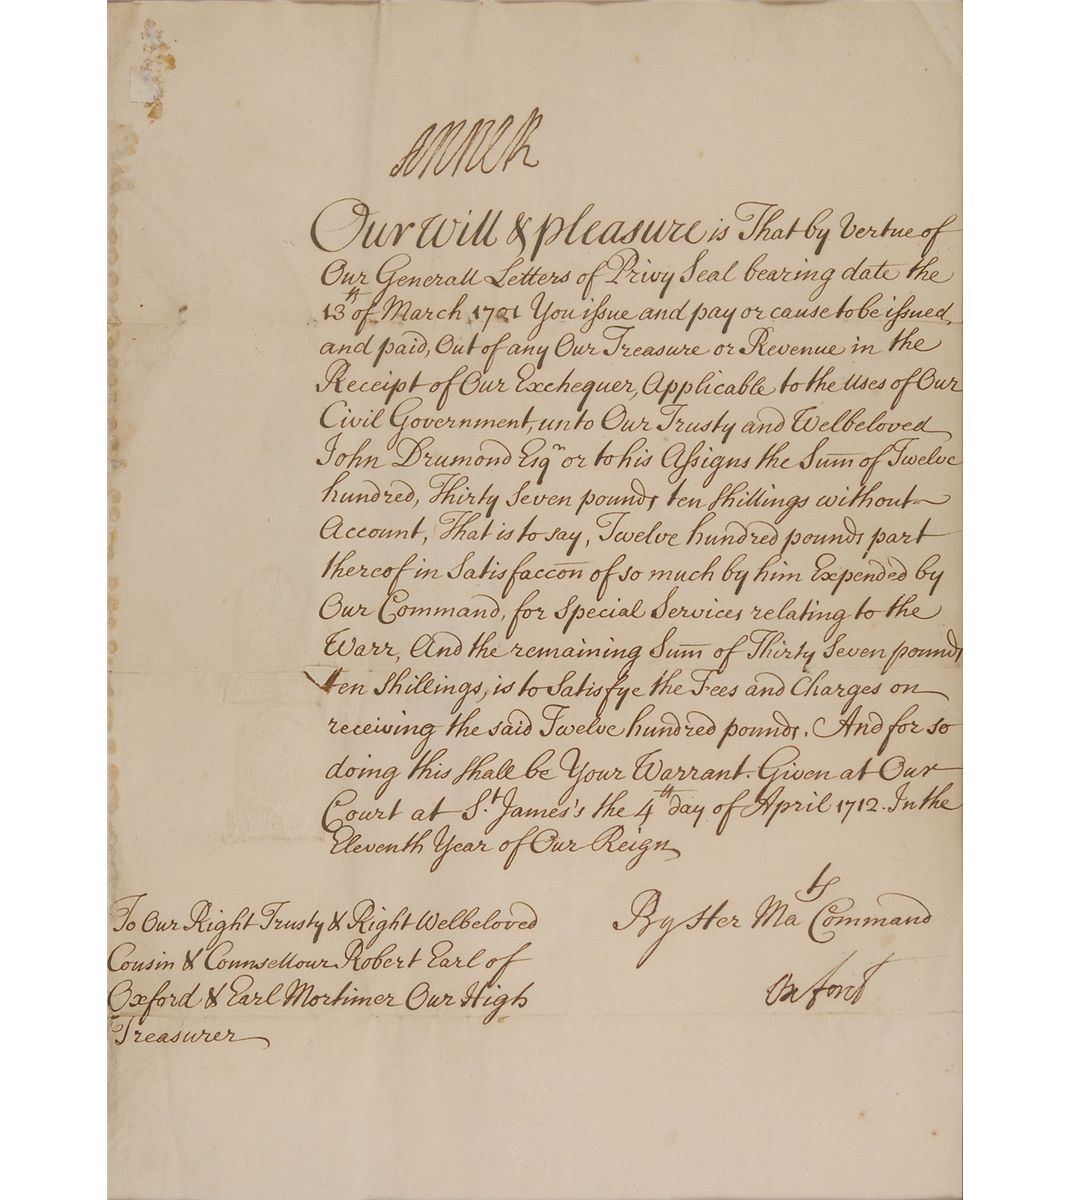 ANNE R
Our Will & pleasure is That by Vertue of
Our Generall Letters of Privy Seal bearing date the
13th of March 1701 You issue and pay or cause to be issued,
and paid, Out of any Our Treasure or Revenue in the
Receipt of Our Exchequer, Applicable to the Uses of Our
Civil Government, unto Our Trusty and Welbeloved
John Drumond Esqr or to his Assigns the Sum̅ of Twelve
hundred, Thirty Seven pounds ten shillings without
Account, That is to say, Twelve hundred pounds part
thereof in Satisfaccōn of so much by him Expended by
Our Command, for Special Services relating to the
Warr, And the remaining Sum̅ of Thirty Seven pounds
ten Shillings, is to Satisfye the Fees and Charges on
receiving the said Twelve hundred pounds. And for so
doing this shall be Your Warrant. Given at Our
Court at St. James's the 4th day of April 1712. In the
Eleventh Year of Our Reign
By Her Mats Command
Oxford
To Our Right Trusty & Right Welbeloved
Cousin & Counsellour Robert Earl of
Oxford & Earl Mortimer Our High
Treasurer